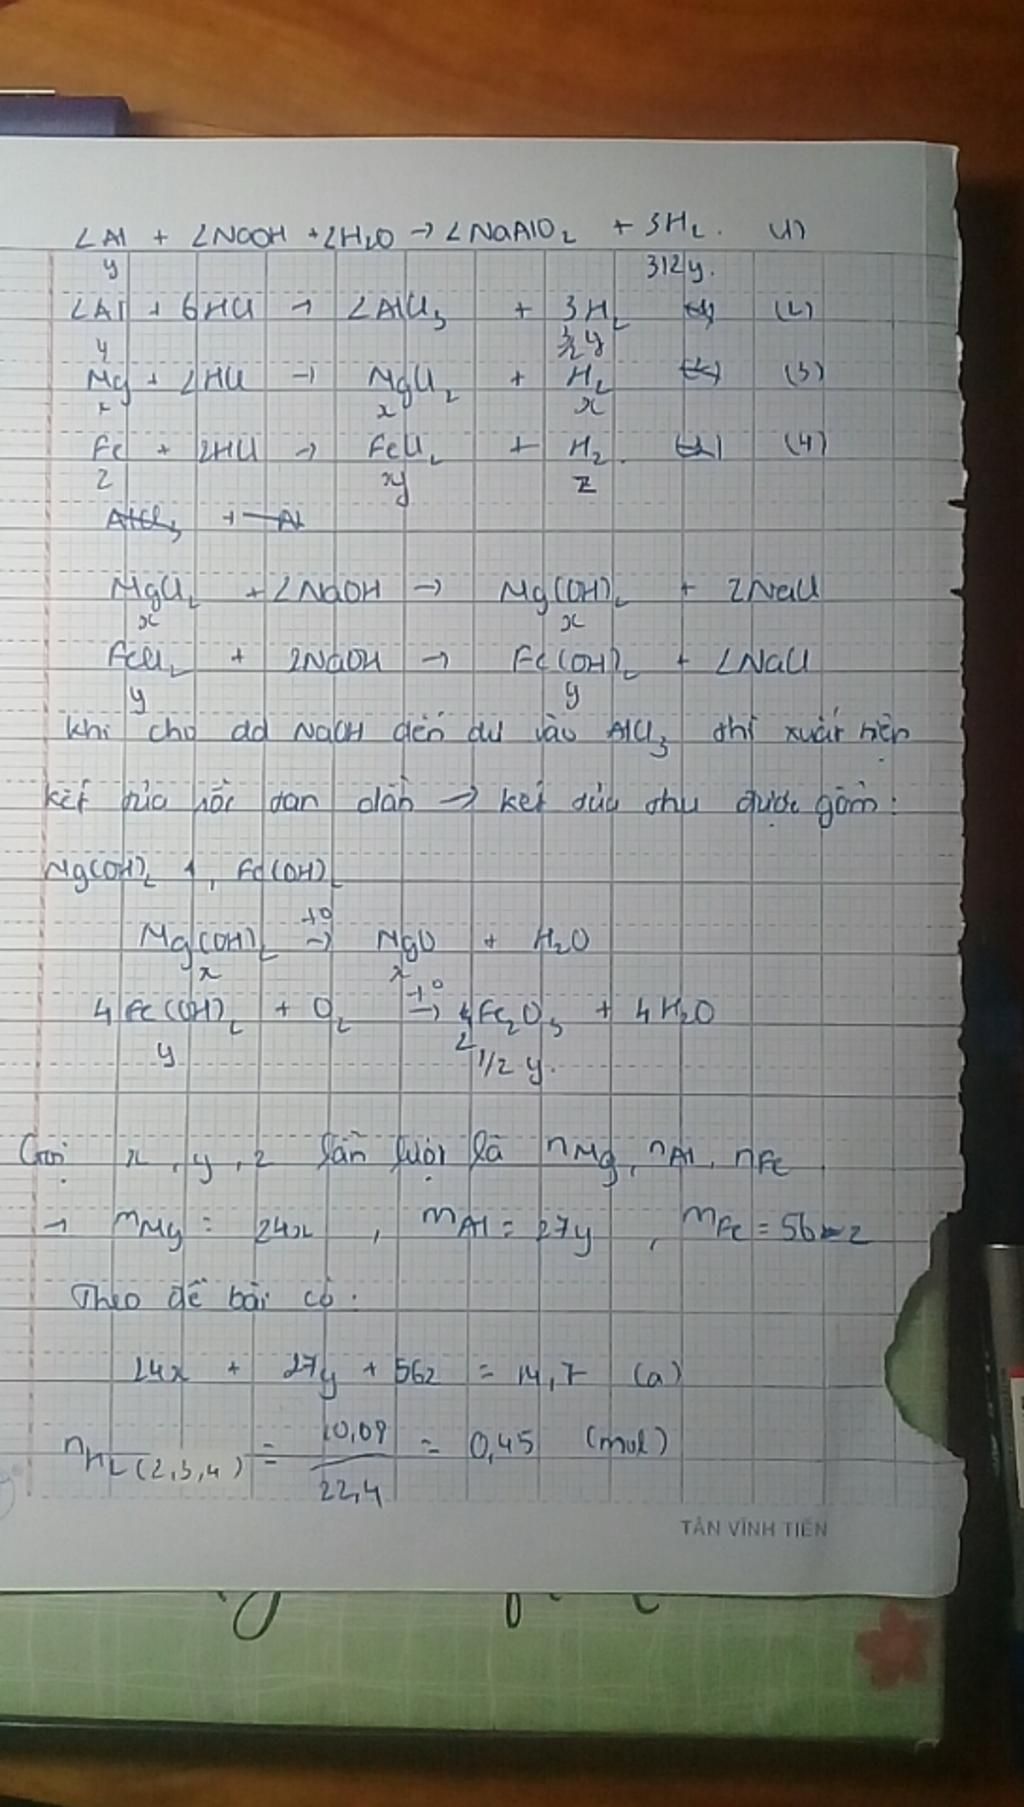 2Al + 2NaOH + 2H2O → 2NaAlO2 + 3H2. (1)
y 3/2y.
2Al + 6HCl → 2AlCl3 + 3H2 (2)
y 3/2 y
Mg + 2HCl → MgCl2 + H2 (3)
x x x
Fe + 2HCl → FeCl2 + H2. (4)
z xy z
AlCl3 + Al
MgCl2 + 2NaOH → Mg(OH)2 + 2NaCl
x x
FeCl2 + 2NaOH → Fe(OH)2 + 2NaCl
y y
khi cho dd NaOH đến dư vào AlCl3 thì xuất hiện
kết tủa rồi tan dần → kết tủa thu được gồm:
Mg(OH)2 , Fe(OH)2
Mg(OH)2 t° → MgO + H2O
x x
4Fe(OH)2 + O2 t° → 2Fe2O3 + 4H2O
y 1/2 y.
Gọi x, y, z lần lượt là nMg, nAl, nFe
→ mMg = 24x , mAl = 27y , mFe = 56z
Theo đề bài có:
24x + 27y + 56z = 14,7 (a)
nH2 (2,3,4) = 10,08 / 22,4 = 0,45 (mol)
TÂN VĨNH TIẾN